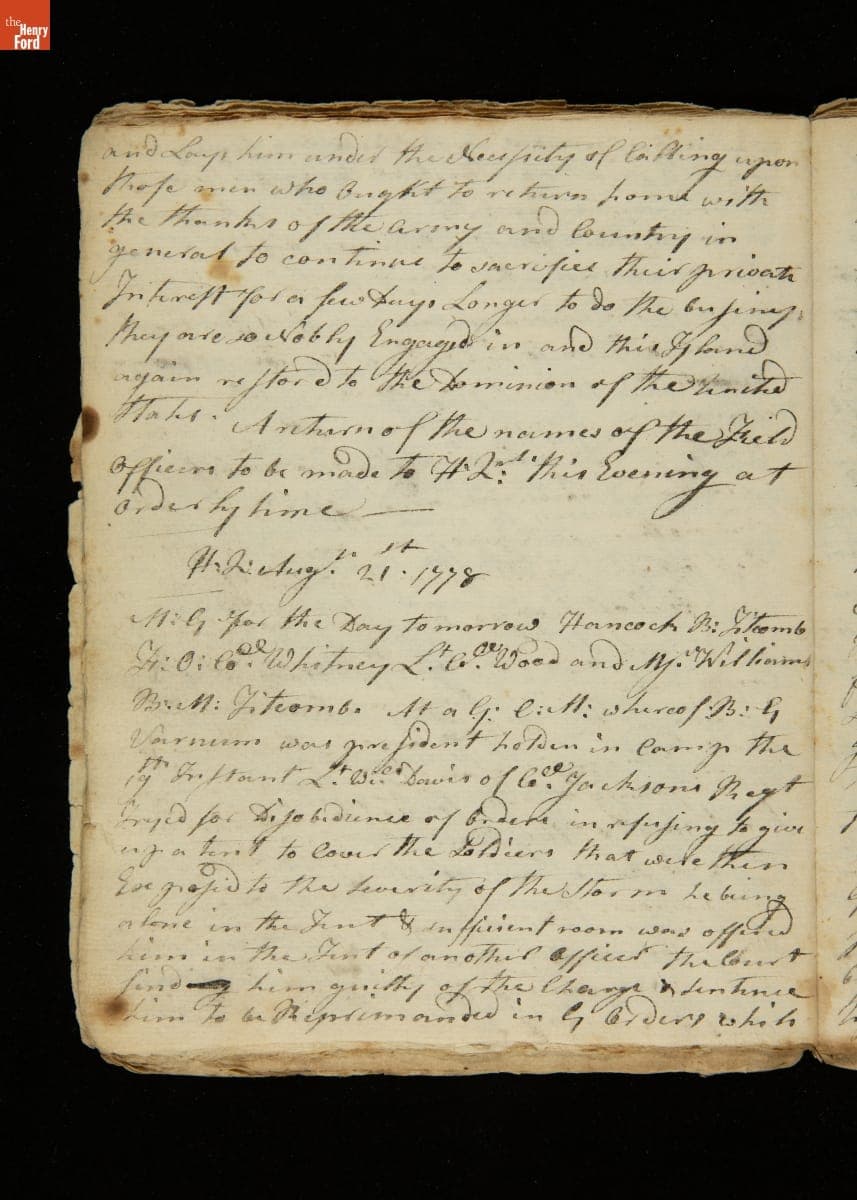 the Henry Ford
and Lays him under the Necessity of Calling upon
those men who Ought to return home with
the thanks of the Army and Country in
general to continue to sacrifice their private
Interest for a few Days Longer to do the business
they are so Nobly Engaged in and this Island
again restord to the Dominion of the United
States. A return of the names of the Field
Officers to be made to H: Qrs: this Evening at
orderly time —
H: Q: Augt. 21st. 1778
M: G for the Day tomorrow Hancock B: Titcomb
F: O: Col. Whitney Lt. Col. Wood and Mjr. Williams
B: M: Titcombs At a G: C: M: whereof B: G
Varnum was president holden in Camp the
19th Instant Lt. Davis of Col. Jacksons Regt
Tryed for Disobedience of Orders in refusing to give
up a tent to Cover the Soldiers that were then
Exposed to the severity of the Storm he being
alone in the Tent & sufficient room was offered
him in the Tent of another Officer the Court
find him guilty of the Charge & sentence
him to be Reprimanded in G Orders which